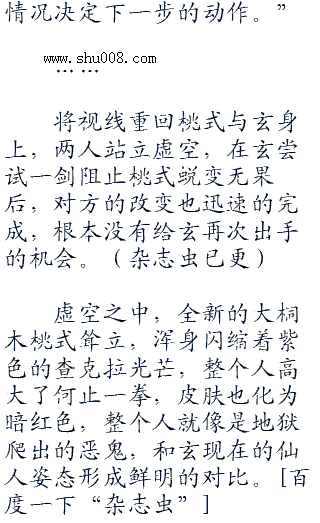 情况决定下一步的动作。”
www.shu008.com
……
将视线重回桃式与玄身
上，两人站立虚空，在玄尝
试一剑阻止桃式蜕变无果
后，对方的改变也迅速的完
成，根本没有给玄再次出手
的机会。（杂志虫已更）
虚空之中，全新的大桐
木桃式耸立，浑身闪缩着紫
色的查克拉光芒，整个人高
大了何止一拳，皮肤也化为
暗红色，整个人就像是地狱
爬出的恶鬼，和玄现在的仙
人姿态形成鲜明的对比。[百
度一下“杂志虫”]